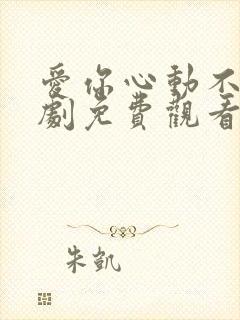 愛你心動不
劇免費觀看
朱凱